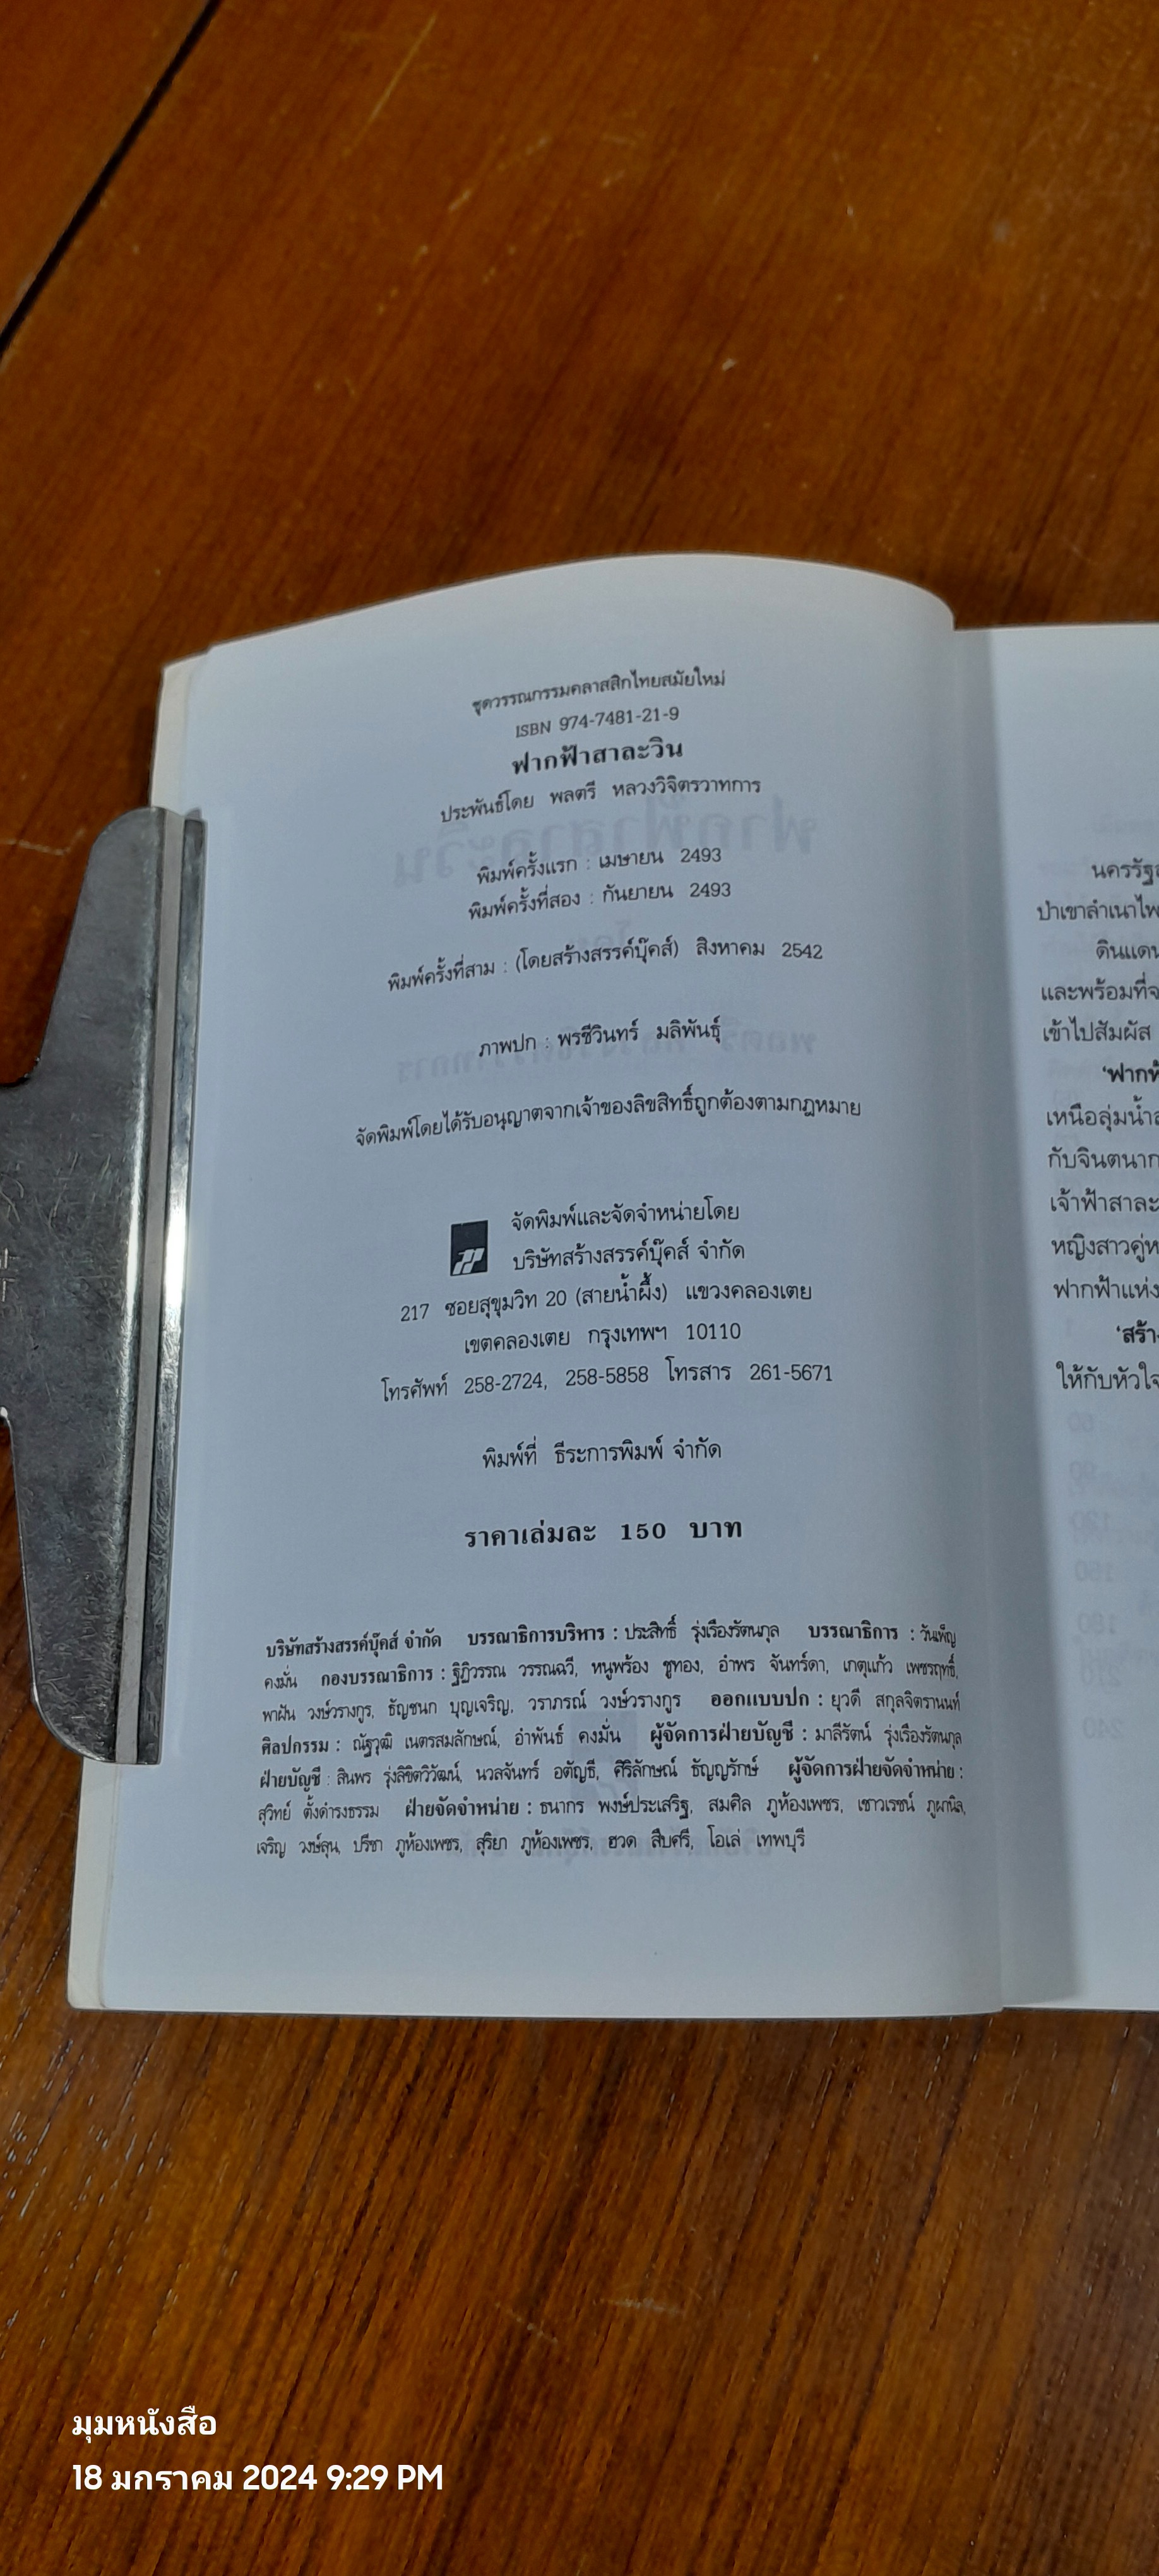 ชุดวรรณกรรมคลาสสิกไทยสมัยใหม่
ISBN 974-7481-21-9
ฟากฟ้าสาละวิน
ประพันธ์โดย พลตรี หลวงวิจิตรวาทการ
พิมพ์ครั้งแรก : เมษายน 2493
พิมพ์ครั้งที่สอง : กันยายน 2493
พิมพ์ครั้งที่สาม : (โดยสร้างสรรค์บุ๊คส์) สิงหาคม 2542
ภาพปก : พรชีวินทร์ มลิพันธุ์
จัดพิมพ์โดยได้รับอนุญาตจากเจ้าของลิขสิทธิ์ถูกต้องตามกฎหมาย
จัดพิมพ์และจัดจำหน่ายโดย
บริษัทสร้างสรรค์บุ๊คส์ จำกัด
217 ซอยสุขุมวิท 20 (สายน้ำผึ้ง) แขวงคลองเตย
เขตคลองเตย กรุงเทพฯ 10110
โทรศัพท์ 258-2724, 258-5858 โทรสาร 261-5671
พิมพ์ที่ ธีระการพิมพ์ จำกัด
ราคาเล่มละ 150 บาท
บริษัทสร้างสรรค์บุ๊คส์ จำกัด บรรณาธิการบริหาร : ประสิทธิ์ รุ่งเรืองรัตนกุล บรรณาธิการ : วันเพ็ญ
คงมั่น กองบรรณาธิการ : ฐิฏิวรรณ วรรณฉวี, หนูพร้อง ชูทอง, อำพร จันทร์ดา, เกตุแก้ว เพชรฤทธิ์,
พาฝัน วงษ์วรางกูร, ธัญชนก บุญเจริญ, วราภรณ์ วงษ์วรางกูร ออกแบบปก : ยุวดี สกุลจิตรานนท์
ศิลปกรรม : ณัฐวุฒิ เนตรสมลักษณ์, อำพันธ์ คงมั่น ผู้จัดการฝ่ายบัญชี : มาลีรัตน์ รุ่งเรืองรัตนกุล
ฝ่ายบัญชี : สินพร รุ่งลิขิตวิวัฒน์, นวลจันทร์ อตัญธี, ศิริลักษณ์ ธัญญรักษ์ ผู้จัดการฝ่ายจัดจำหน่าย :
สุวิทย์ ตั้งดำรงธรรม ฝ่ายจัดจำหน่าย : ธนากร พงษ์ประเสริฐ, สมศิล ภูห้องเพชร, เชาวเรชน์ ภูผานิล,
เจริญ วงษ์ลุน, ปรีชา ภูห้องเพชร, สุริยา ภูห้องเพชร, ฮวด สืบศรี, โอเล่ เทพบุรี
นครรัฐ
ป่าเขาลำเนาไพ
ดินแดน
และพร้อมที่จ
เข้าไปสัมผัส
'ฟากฟ้
เหนือลุ่มน้ำ
กับจินตนาก
เจ้าฟ้าสาละ
หญิงสาวคู่ห
ฟากฟ้าแห่ง
'สร้า
ให้กับหัวใจ
มุมหนังสือ
18 มกราคม 2024 9:29 PM